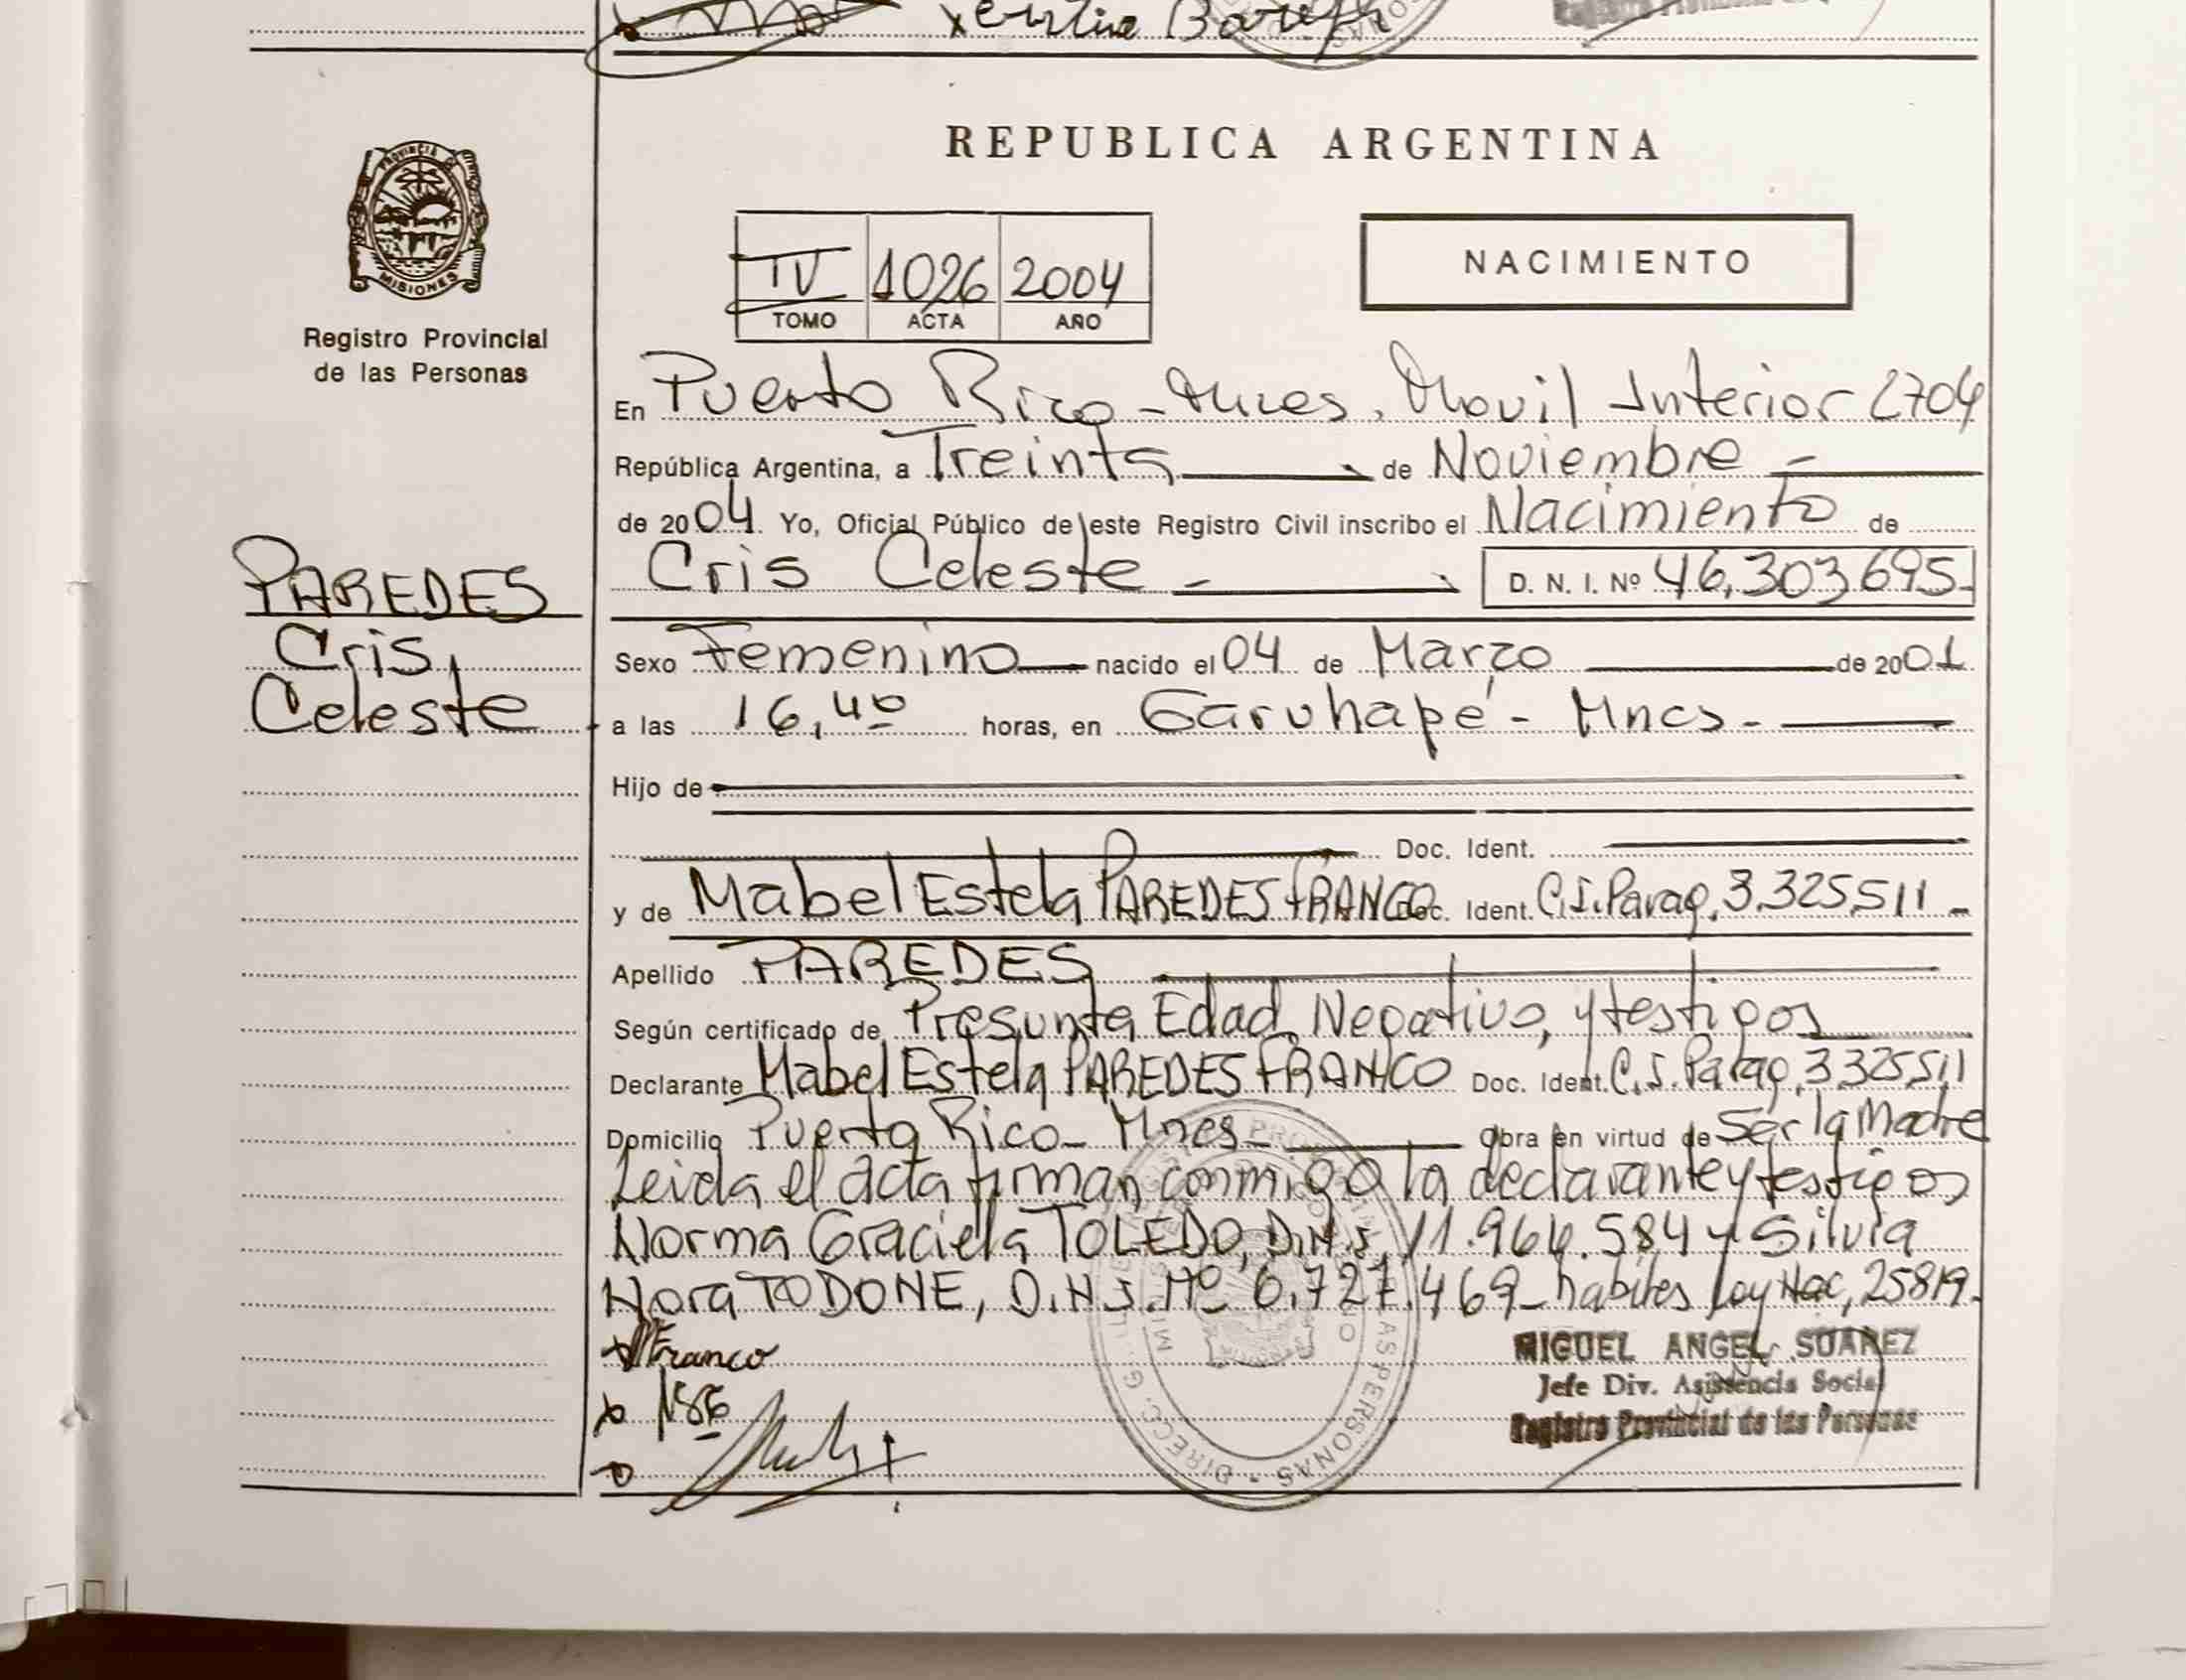 REPUBLICA ARGENTINA
PROVINCIA DE MISIONES
Registro Provincial
de las Personas
NACIMIENTO
IV 1026 2004
TOMO ACTA AÑO
En Puerto Rico - Mnes. Movil Interior 2704
República Argentina, a Treinta de Noviembre
de 2004 Yo, Oficial Público de este Registro Civil inscribo el Nacimiento de
Cris Celeste D. N. I. Nº 46.303.695
PAREDES
Cris,
Celeste
Sexo Femenino nacido el 04 de Marzo de 2001
a las 16,40 horas, en Garuhapé - Mnes -
Hijo de
Doc. Ident.
y de Mabel Estela PAREDES FRANCO Doc. Ident. C.I. Parag. 3.325.511
Apellido PAREDES
Según certificado de Presunta Edad, Negativo, y testigos
Declarante Mabel Estela PAREDES FRANCO Doc. Ident. C.I. Parag. 3.325.511
Domicilio Puerto Rico - Mnes - Obra en virtud de Ser la Madre
Leida el acta firman conmigo la declarante y testigos
Norma Graciela TOLEDO, D.N.I. 11.964.584 y Silvia
Nora TODONE, D.N.I. Nº 6.727.469 - habiles Ley Nac, 25819.
Franco
MIGUEL ANGEL SUAREZ
Jefe Div. Asistencia Social
Registro Provincial de las Personas